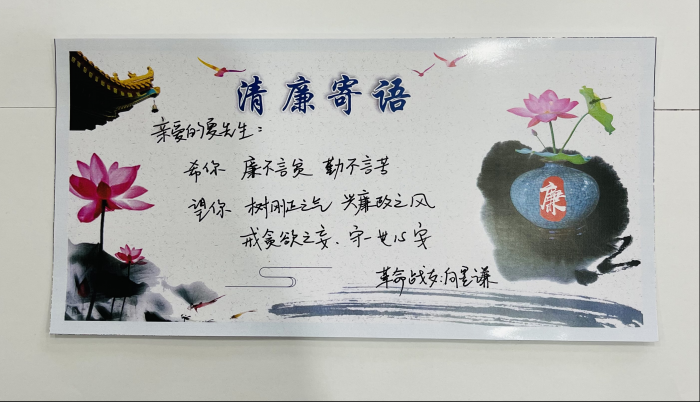 清廉寄语
亲爱的愛先生：
希你 廉不言贫 勤不言苦
望你 树刚正之气 兴廉政之风
戒贪欲之妄、守一世心安
廉
革命战友:向星谦